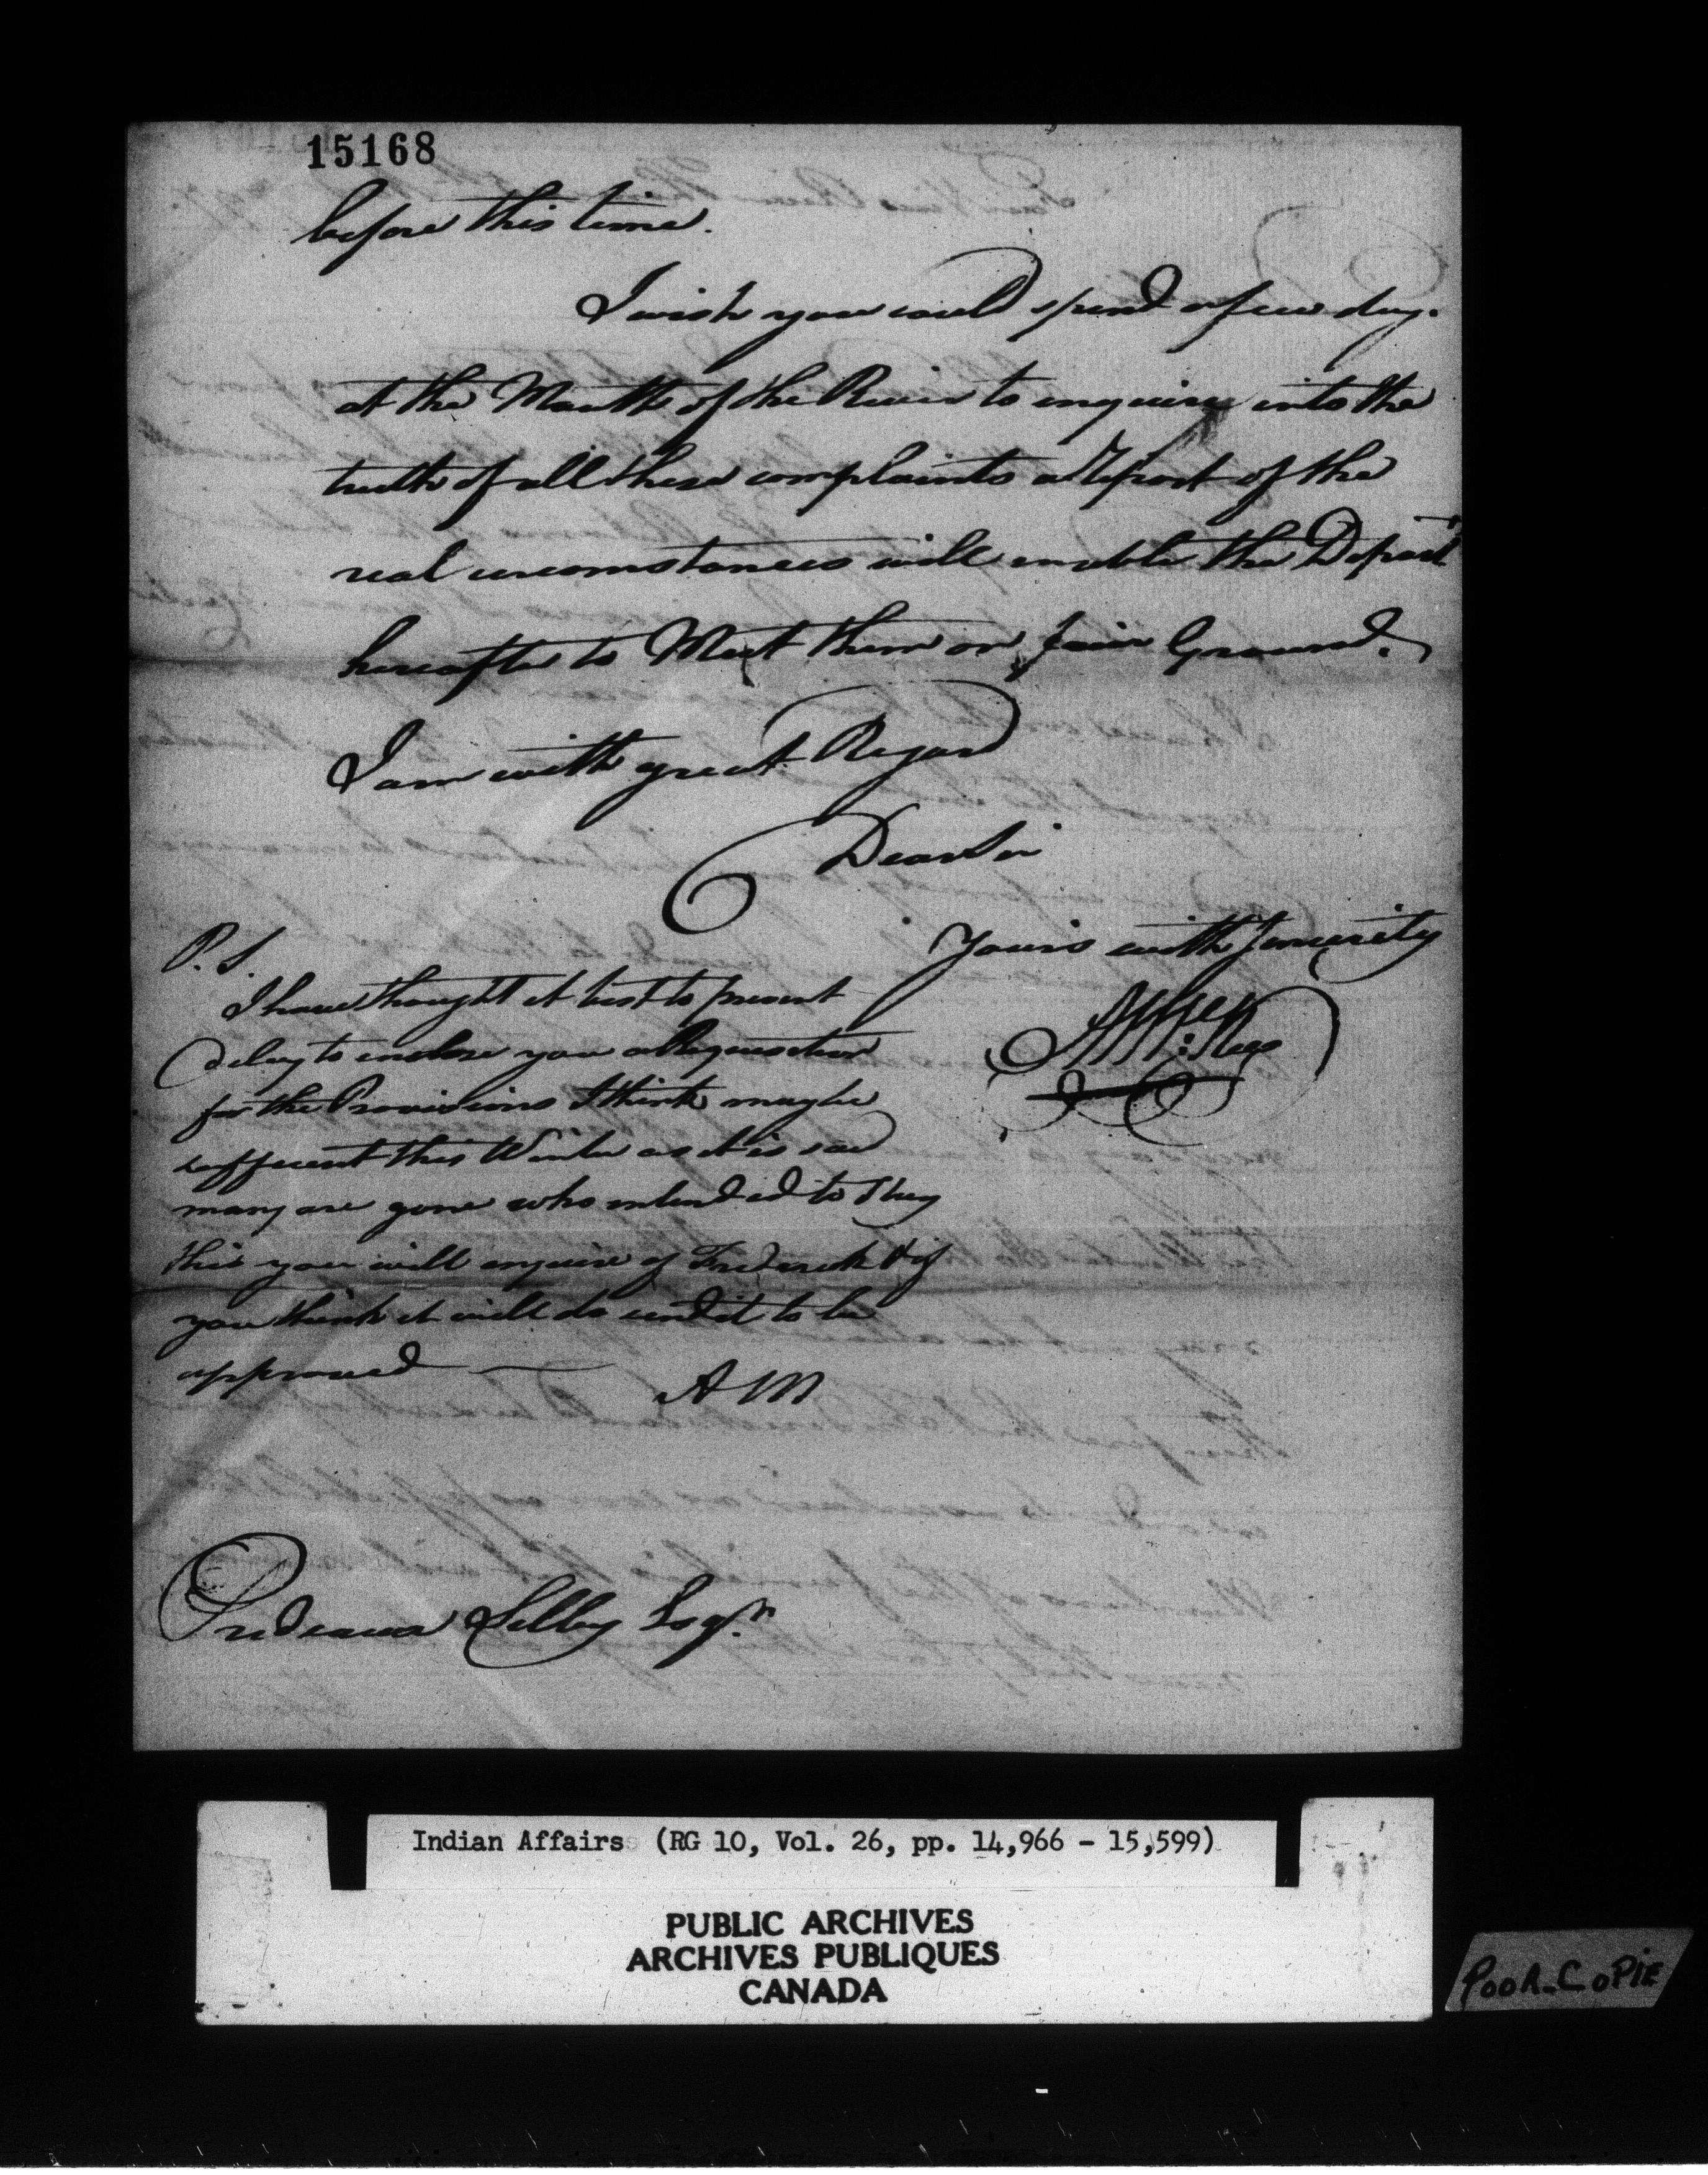 15168
before this time.
I wish you could spend a few days
at the Mouth of the River to enquire into the
truth of all these complaints a Report of the
real circumstances will enable the Depart
hereafter to Meet them on fair Ground.
I am with great Regard
Dear Sir
Yours with Sincerity
AMcKee
P.S.
I have thought it best to prevent
delay to enclose you a Requisition
for the Provisions I think may be
sufficent this Winter as it is said
many are gone who intended to Stay
this you will enquire of Frederick & if
you think it will do send it to be
approved
AM
Prideaux Selby Esqr.
Indian Affairs (RG 10, Vol. 26, pp. 14,966 - 15,599)
PUBLIC ARCHIVES
ARCHIVES PUBLIQUES
CANADA
POOR-COPIE